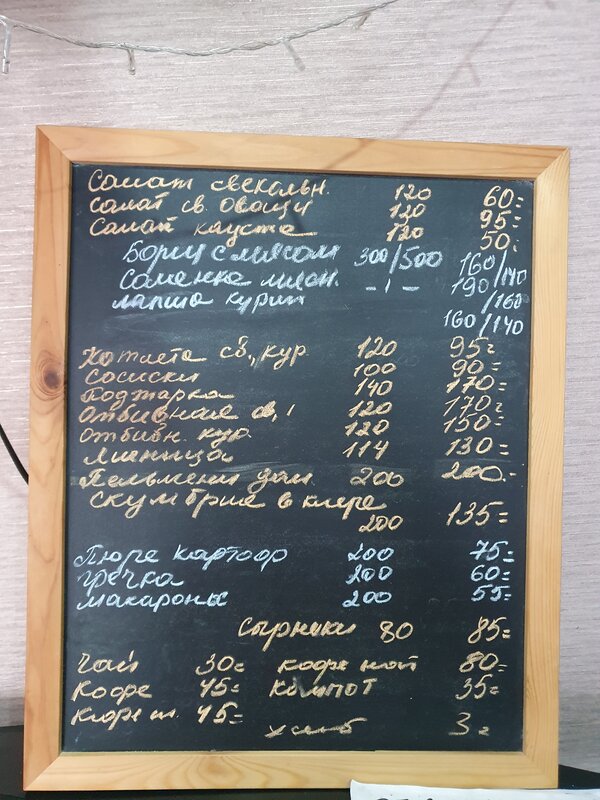 Салат свекольн. 120 60=
Салат св. овощи 120 95=
Салат капуста 120 50.
Борщ с мясом 300/500 160/140
Солянка мясн. -"- 190/160
лапша курин 160/140
Котлета св., кур. 120 95=
Сосиски 100 90=
Поджарка 140 170=
Отбивная св. 120 170=
Отбивн. кур. 120 150=
Яичница 114 130=
Пельмени дом. 200 200.-
Скумбрия в кляре
200 135=
Пюре картоф 200 75=
гречка 200 60=
макароны 200 55=
Сырники 80 85=
Чай 30= кофе 80=
Кофе 45= Компот 35=
45=
хлеб 3=